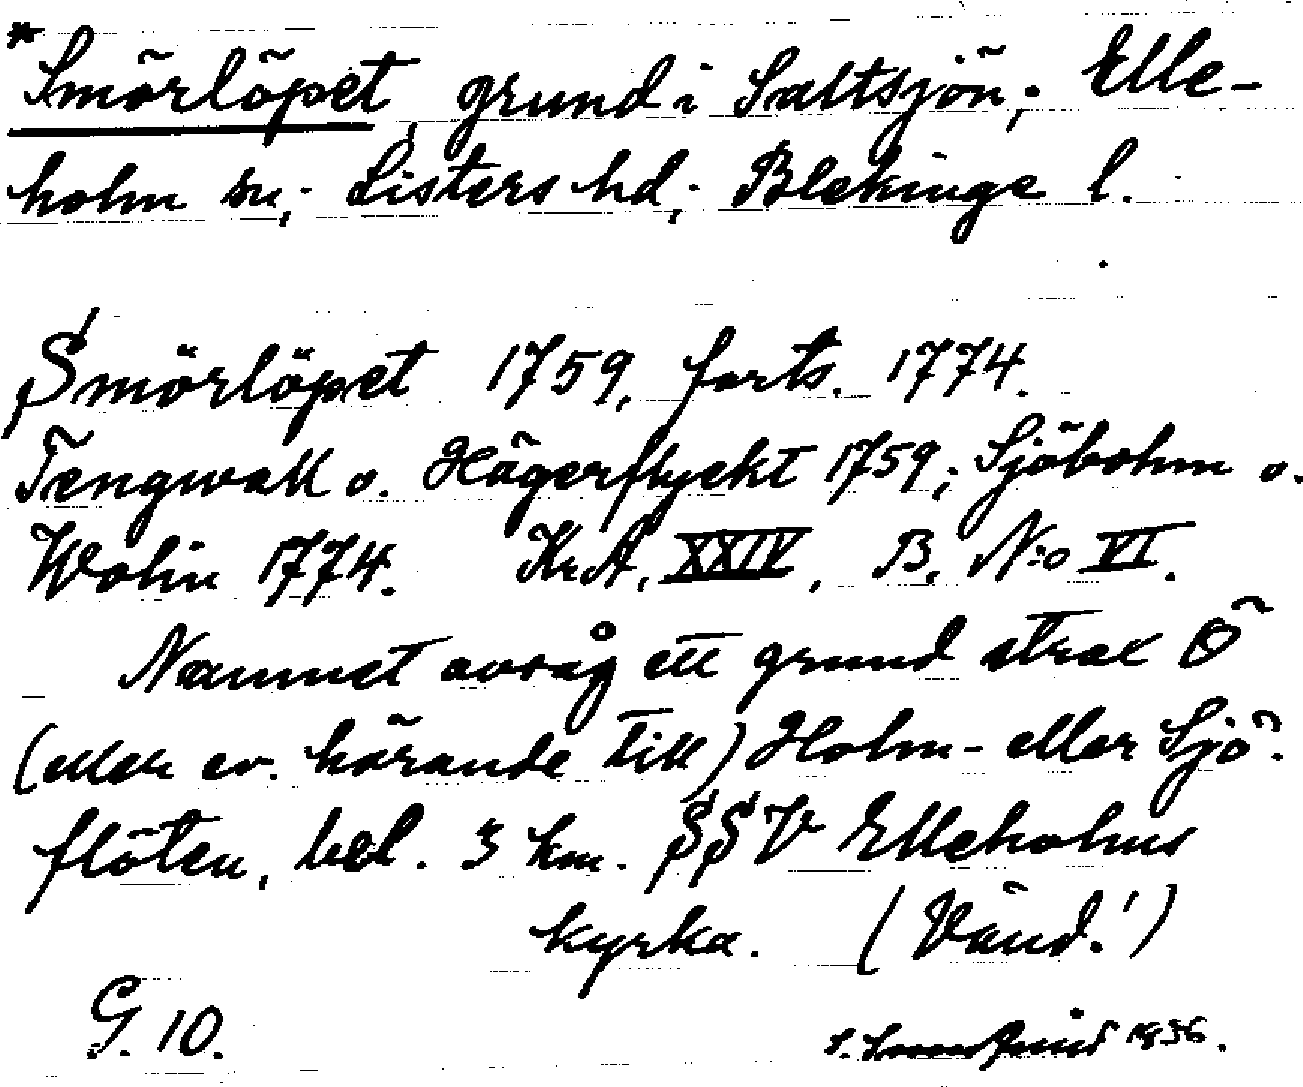 *Smörlöpet, grund i Saltsjön; Elle-
holm sn; Listers hd; Blekinge l.
Smörlöpet 1759, forts. 1774.
Tengwall o. Hägerflyckt 1759; Sjöbohm o.
Wolin 1774. KrA, XXIV, B, N:o VI.
Namnet avsåg ett grund strax Ö
(eller ev. hörande till) Holm- eller Sjö-
flöten, bel. 3 km. SSV Elleholms
kyrka. (Vänd!)
G. 10.
S. 1936.